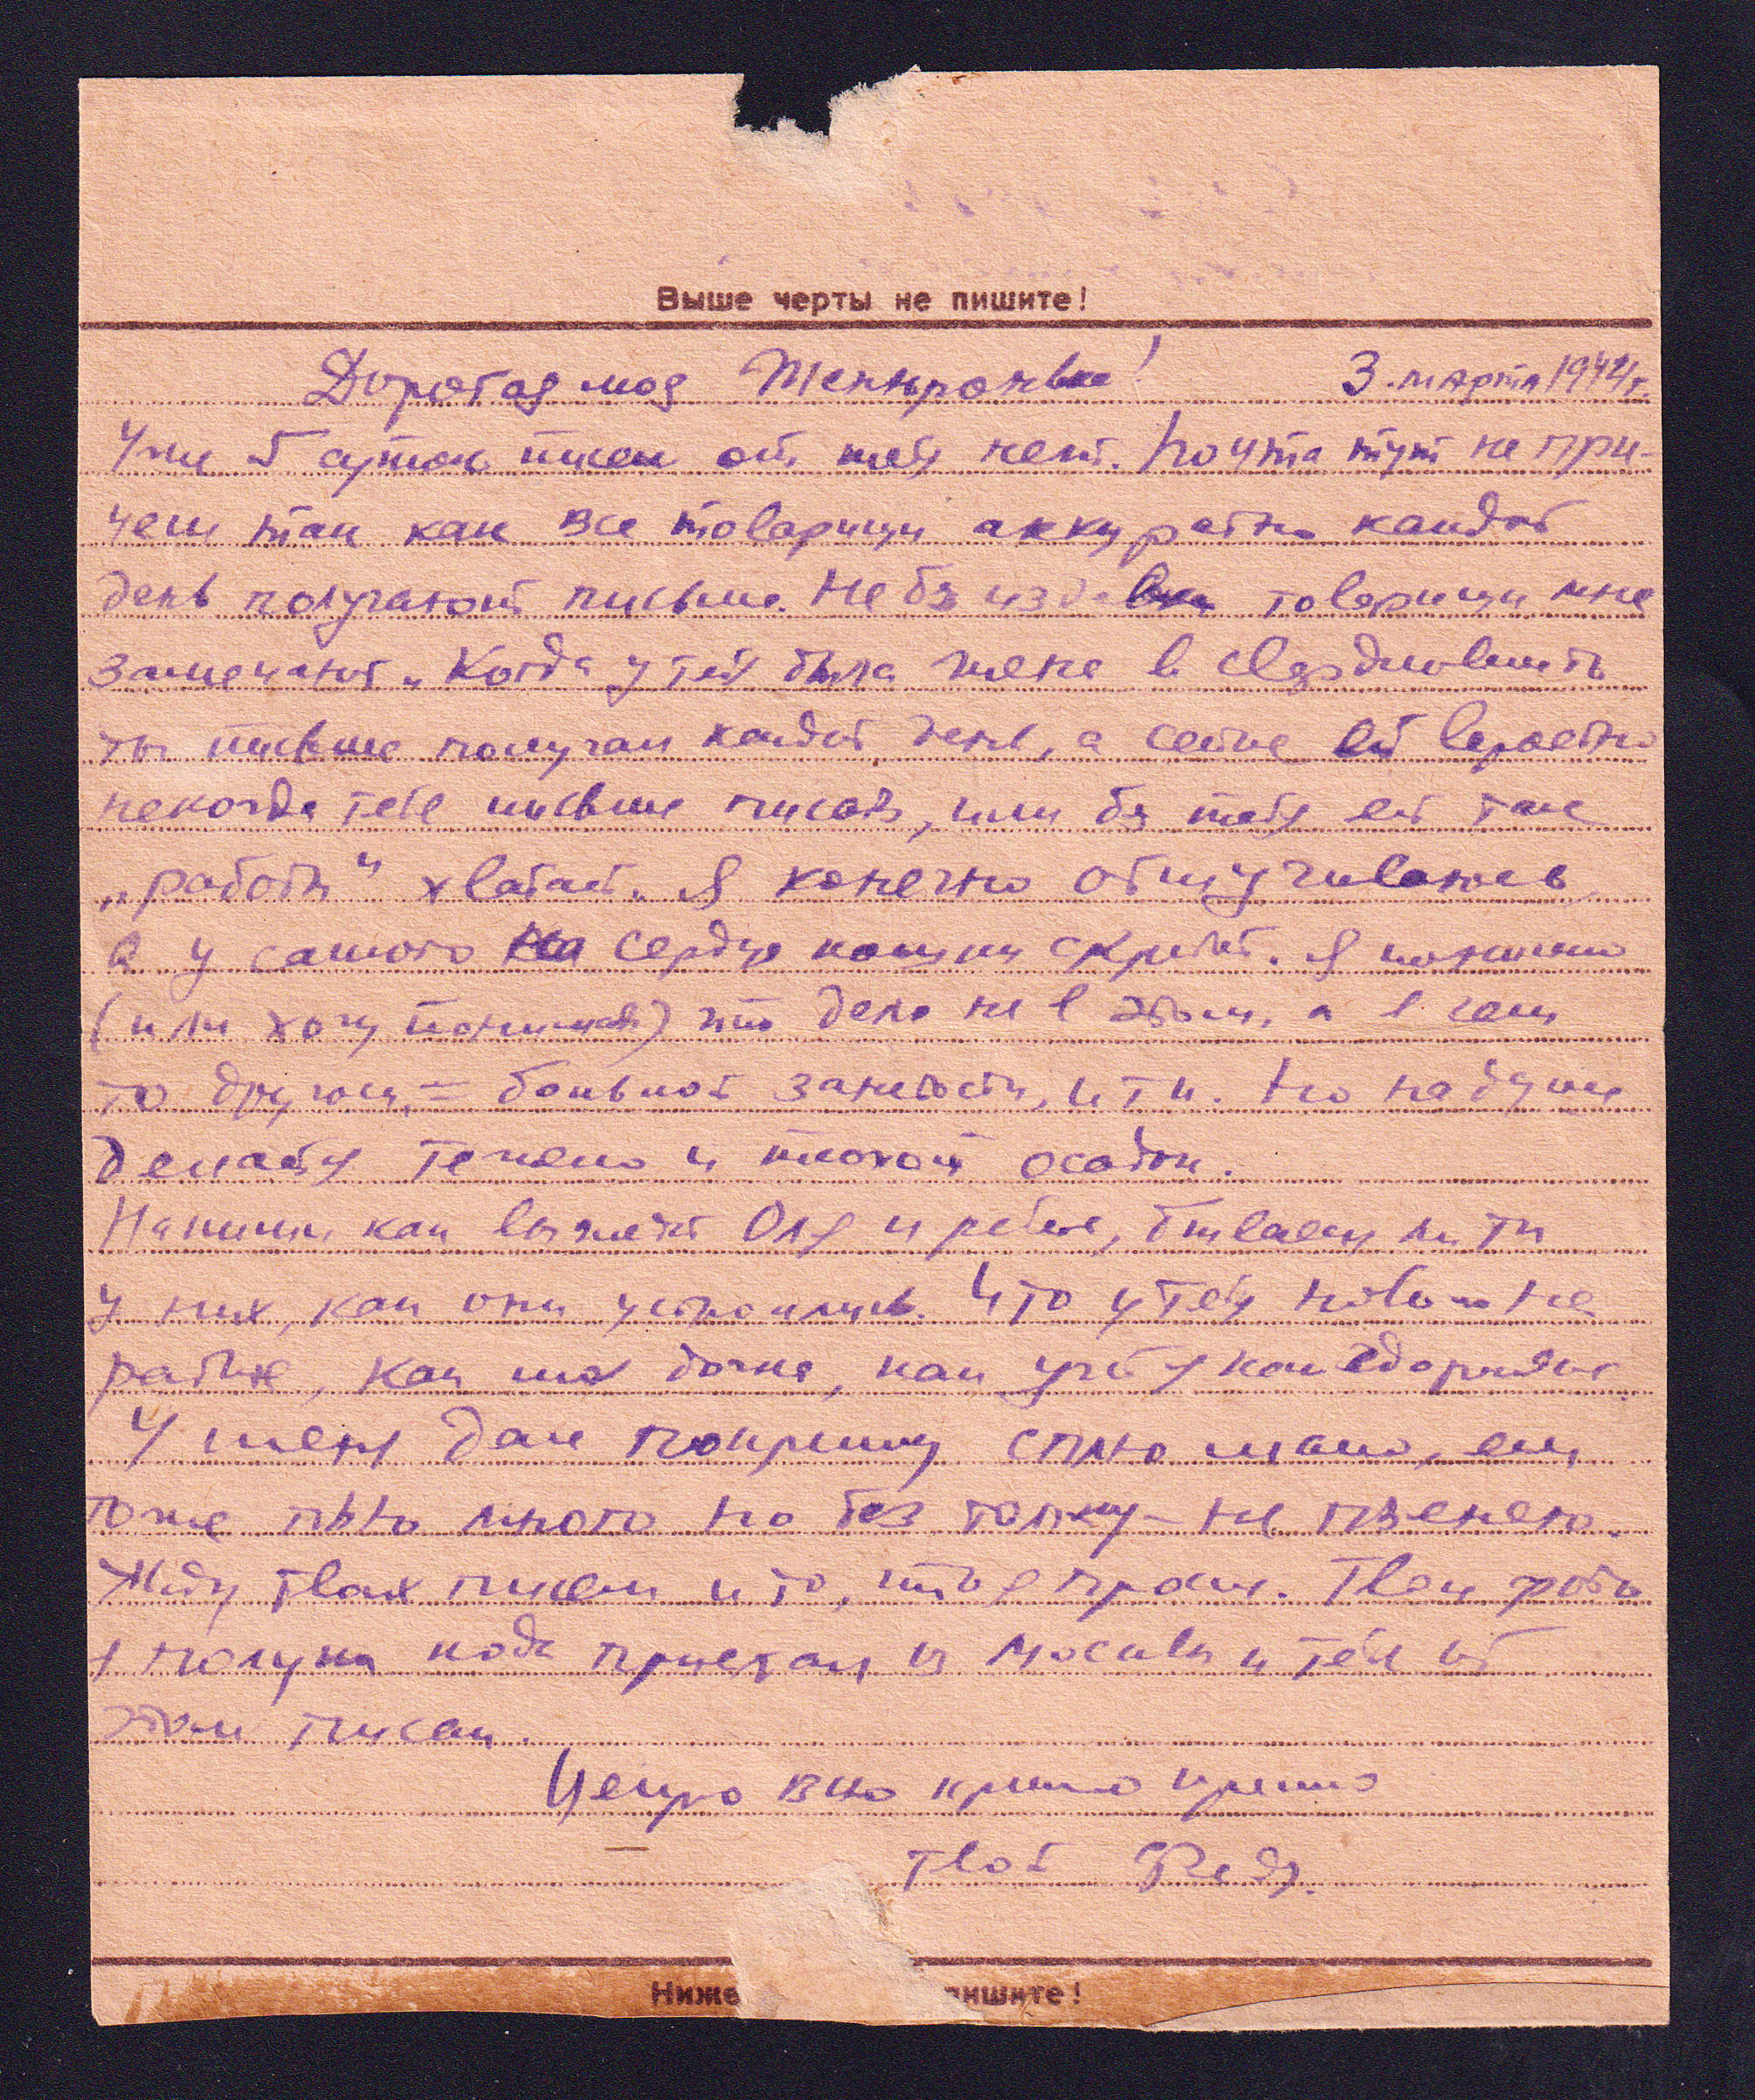 Выше черты не пишите!
Дорогая моя 3 марта 1942 г.
Уже 5 суток писем от тебя нет. Почта тут не при-
чем так как все товарищи аккуратно каждый
день получают письма. Не без товарищи мне
замечают „Когда у тебя была жена в
ты письма получал каждый день, а сейчас ей вероятно
некогда тебе письма писать, или без тебя ей там
„работы“ хватает„ Я конечно отшучиваюсь
а у самого на сердце кошки скребут. Я понимаю
(или хочу понимать) что дело не в этом, а в чем
то другом, = большой занятости, и т п. Но на душе
делается тяжело и плохой осадок.
Напиши как выглядит Оля и ребята, бываешь ли ты
у них, как они устроились. Что у тебя нового на
работе, как моя дочка, как учёба как здоровье.
У меня дела сплю мало, ем
тоже пью много но без толку – не пьянею.
Жду твоих писем и то, что я просил. Твои фото
я получил когда приехал из Москвы и тебе об
этом писал.
Целую всю крепко крепко
твой Федя.
Ниже пишите!